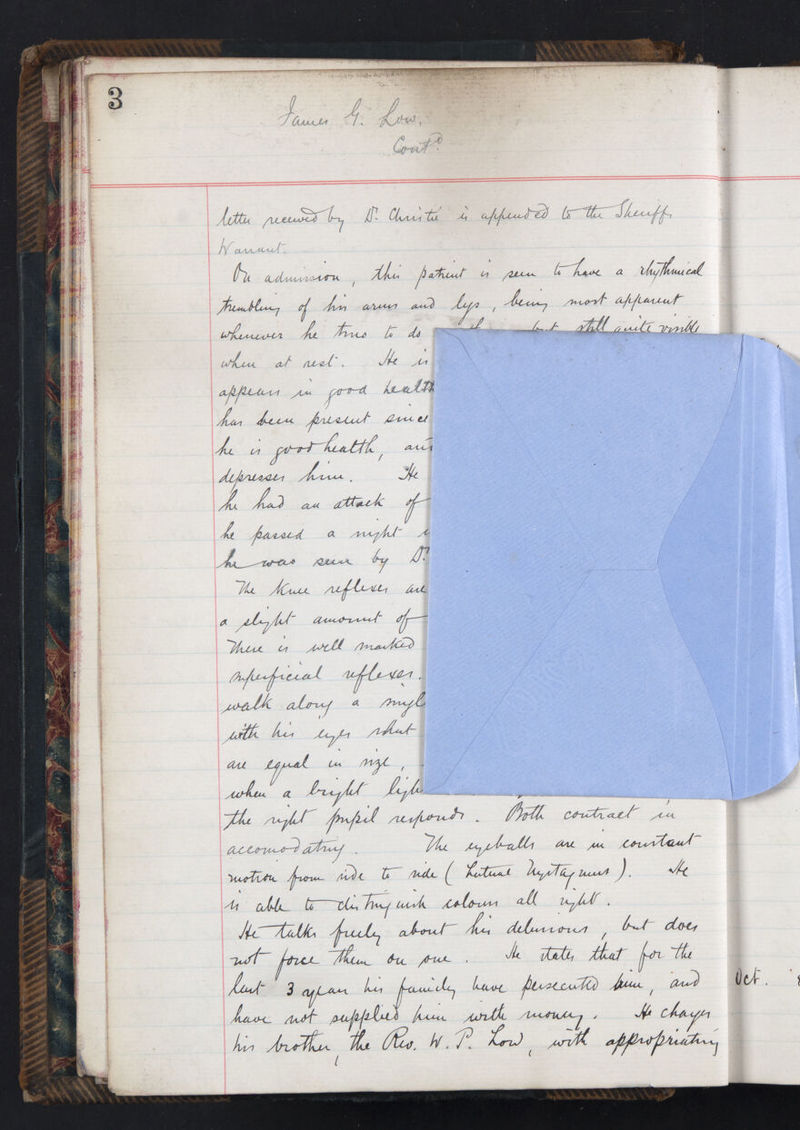 3
James G. Low.
Contd.
letter received by Dr. Christie is appended to the Sheriff's
Warrant.
On admission, this patient is seen to have a rhythmical
trembling of his arms and legs, being most apparent
whenever he tries to do but still quite visible
when at rest. He is
appears in good health
has been present since
he is good health, and
depresses him. He
he had an attack of
he passed a night
he was seen by Dr.
The knee reflexes are
a slight amount of
There is well marked
superficial reflexes.
walk along a
with his eyes shut
are equal in size,
when a bright
the right pupil responds. Both contract in
accomodating. The eyeballs are in constant
motion from side to side (Lateral Nystagmus). He
is able to distinguish colours all right.
He talks freely about his delusions, but does
not force them on one. He states that for the
last 3 years his family have persecuted him, and
have not supplied him with money. He charges
his brother, the Rev. W. P. Low, with appropriating
Oct.